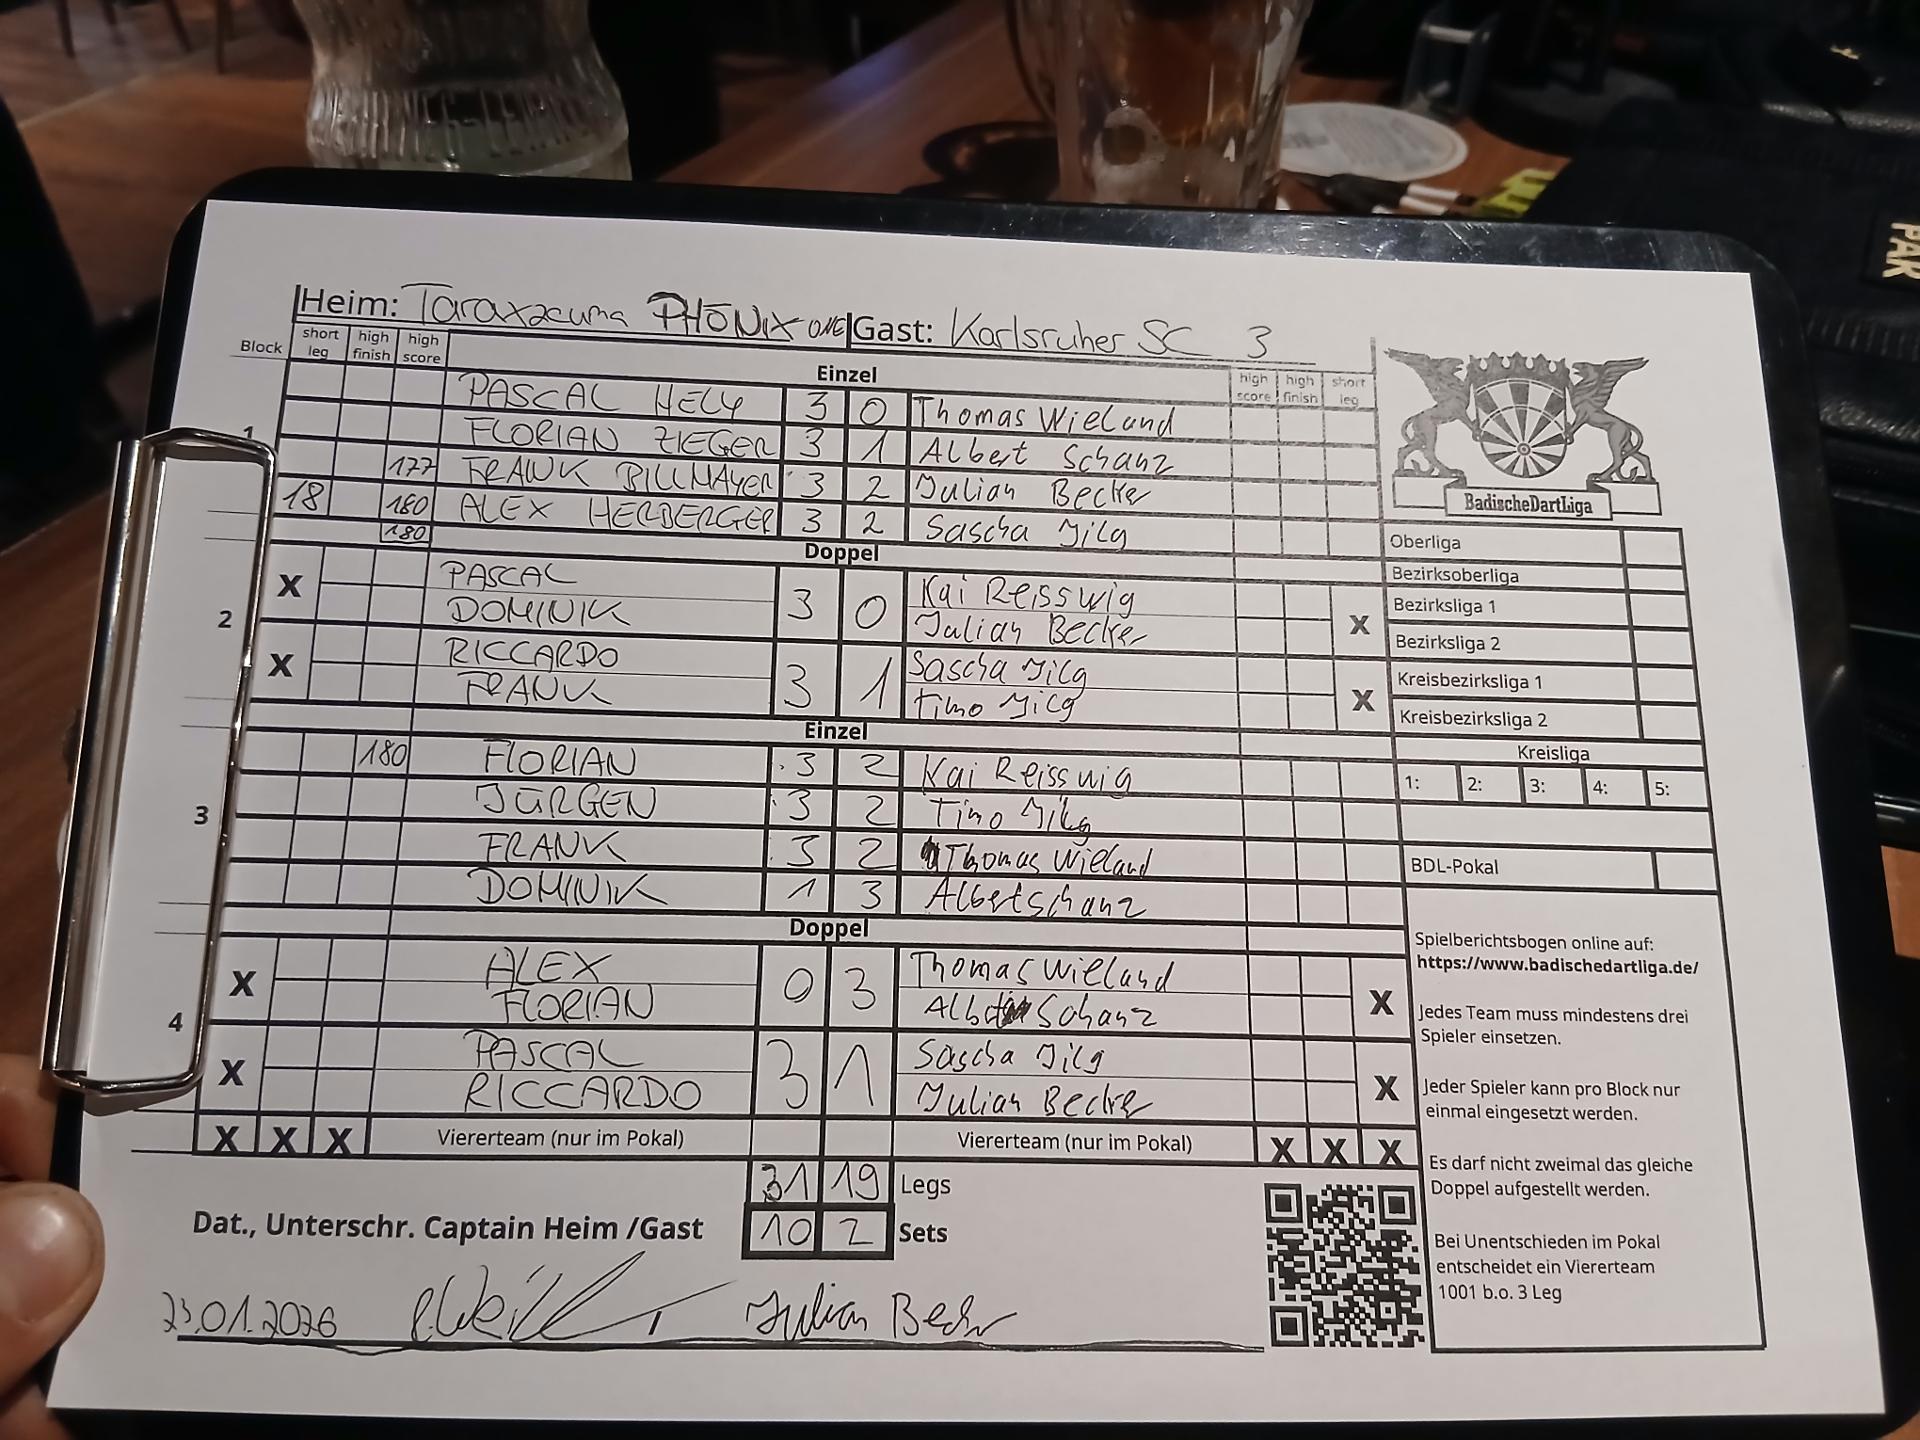 Heim: Taraxacuma PHÖNIX ONE Gast: Karlsruher SC 3
Block short leg high finish high score
Einzel
high score high finish short leg
1
PASCAL HELY 3 0 Thomas Wieland
FLORIAN ZIEGER 3 1 Albert Schanz
177 FRANK BILLMAYER 3 2 Julian Becker
18 180 ALEX HERBERGER 3 2 Sascha Jilg
180
Doppel
2
X PASCAL 3 0 Kai Reisswig X
DOMINIK Julian Becker
X RICCARDO 3 1 Sascha Jilg X
FRANK Timo Jilg
Einzel
3
180 FLORIAN 3 2 Kai Reisswig
JÜRGEN 3 2 Timo Jilg
FRANK 3 2 Thomas Wieland
DOMINIK 1 3 Albert Schanz
Doppel
4
X ALEX 0 3 Thomas Wieland X
FLORIAN Schanz
X PASCAL 3 1 Sascha Jilg X
RICCARDO Julian Becker
X X X Viererteam (nur im Pokal) Viererteam (nur im Pokal) X X X
31 19 Legs
10 2 Sets
Dat., Unterschr. Captain Heim /Gast
23.01.2026 Julian Becker
BadischeDartLiga
Oberliga
Bezirksoberliga
Bezirksliga 1
Bezirksliga 2
Kreisbezirksliga 1
Kreisbezirksliga 2
Kreisliga
1: 2: 3: 4: 5:
BDL-Pokal
Spielberichtsbogen online auf:
https://www.badischedartliga.de/
Jedes Team muss mindestens drei
Spieler einsetzen.
Jeder Spieler kann pro Block nur
einmal eingesetzt werden.
Es darf nicht zweimal das gleiche
Doppel aufgestellt werden.
Bei Unentschieden im Pokal
entscheidet ein Viererteam
1001 b.o. 3 Leg